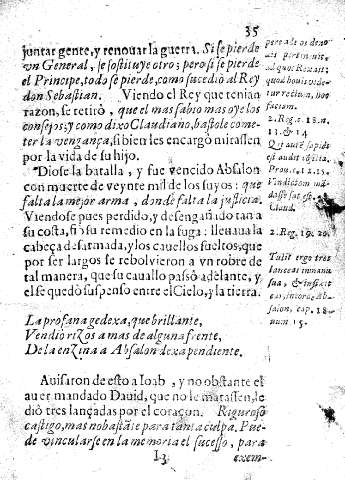 35
juntar gente, y renouar la guerra. Si se pierde
vn General, se sostituye otro; pero si se pierde
el Principe, todo se pierde, como sucediò al Rey
don Sebastian. Viendo el Rey que tenian
razon, se retirò, que el mas sabio mas oye los
consejos; y como dixo Claudiano, bastole come-
ter la vengança, si bien les encargò mirassen
por la vida de su hijo.
Diose la batalla, y fue vencido Absalon
con muerte de veynte mil de los suyos: que
falta la mejor arma, donde falta la justicia.
Viendose pues perdido, y desengañado tan a
su costa, fiò su remedio en la fuga: lleuaua la
cabeça desarmada, y los cauellos sueltos, que
por ser largos se reboluieron a vn robre de
tal manera, que su cauallo passò adelante, y
el se quedò suspenso entre el Cielo, y la tierra.
La profana gedexa, que brillante,
Vendio rizos a mas de alguna frente,
De la enzina a Absalon dexa pendiente.
Auisaron de esto a Ioab, y no obstante el
auer mandado Dauid, que no le matassen, le
diò tres lançadas por el coraçon. Riguroso
castigo, mas no bastàte para tanta culpa. Pue-
de vincularse en la memoria el sucesso, para
I 3 exem-
2. Reg. 18. n.
11. & 14
Qui autẽ sapiẽs
est audit cõsilia.
Prou. c. 12. v.
15.
Claud.
2. Reg. 19. 20.
Tulit ergo tres
lanceas in manu
sua, & infixit
eas, in corde Ab-
salon, cap. 18.
num 15.